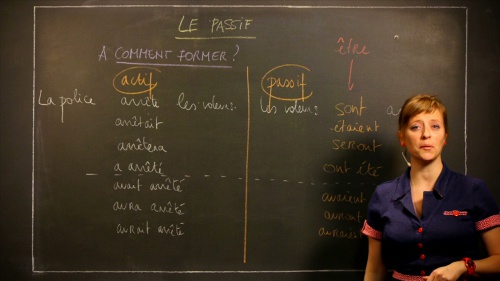 LE PASSIF
A COMMENT FORMER?
être
actif passif
La police arrête les voleurs. les voleurs sont a
arrêtait étaient
arrêtera seront
a arrêté ont été
avait arrêté avaient
aura arrêté auront
aurait arrêté auraient